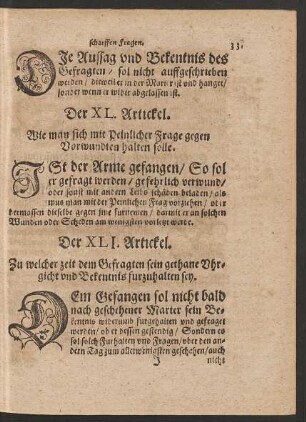 scharffen Fragen. 33.
DIe Aussag vnd Bekentnis des
Gefragten / sol nicht auffgeschrieben
werden / dieweil er in der Marter ist vnd hanget /
sonder wenn er wider abgelossen ist.
Der XL. Artickel.
Wie man sich mit Peinlicher Frage gegen
Vorwundten halten solle.
ISt der Arme gefangen / So sol
er gefragt werden / gefehrlich verwund /
oder sonst mit andern leibs schäden beladen / als
wil man mit der Peinlichen Frag vorziehen / oder
dermossen dieselbe gegen jme furnemen / damit er an solchen
Wunden oder Scheden am wenigsten vorletzt werde.
Der XLI. Artickel.
Zu welcher zeit dem Gefragten sein gethane Vhr-
gicht vnd Bekentnis furzuhalten sey.
DEm Gefangen sol nicht bald
nach geschehener Marter sein Be-
kentnis widerumb furgehalten vnd gefraget
werden / ob er dessen gestendig / Sondern es
sol solch Furhalten vnd Fragen / vber den an-
dern Tag zum allerwenigsten geschehen / auch
J nicht